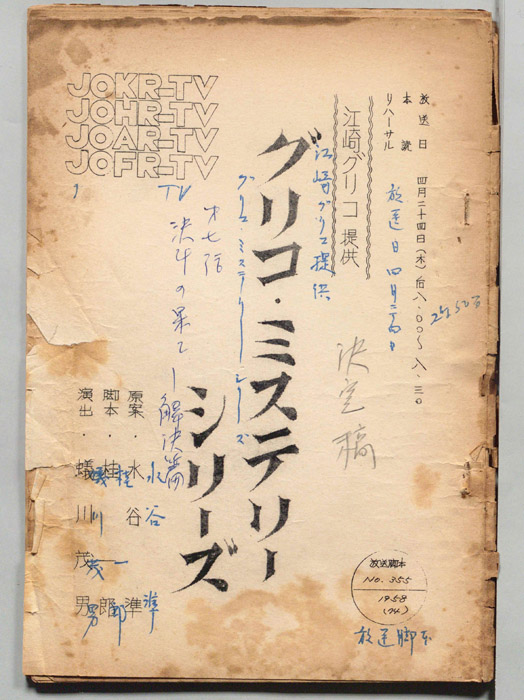 JOKR-TV
JOHR-TV
JOAR-TV
JOFR-TV
放送日 四月二十四日(木)后八.〇〇〜八.三〇
本読
リハーサル
放送日 四月二十四日
江崎グリコ 提供、
江崎グリコ提供
決定稿
グリコ・ミステリー
シリーズ
グリコ・ミステリーシリーズ
TV
才七話
決斗の果て―解決篇
原案・水谷 準
水谷 準
脚本・桂 一郎
桂 一郎
演出・蟻川茂男
蟻川茂男
放送脚本
NO. 355
1958
放送脚本